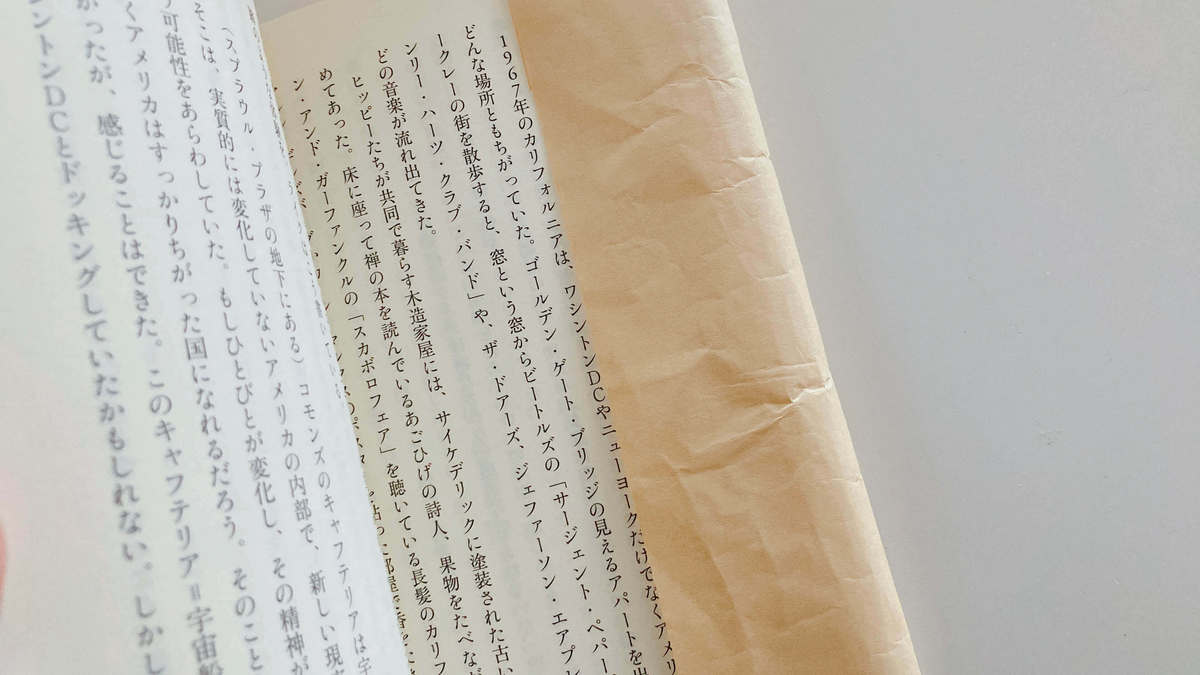 1967年のカリフォルニアは、ワシントンDCやニューヨークだけでなくアメリ
どんな場所ともちがっていた。ゴールデン・ゲート・ブリッジの見えるアパートを出
ークレーの街を散歩すると、窓という窓からビートルズの「サージェント・ペパー
ンリー・ハーツ・クラブ・バンド」や、ザ・ドアーズ、ジェファーソン・エアプレ
どの音楽が流れ出てきた。
ヒッピーたちが共同で暮らす木造家屋には、サイケデリックに塗装された古い
めてあった。床に座って禅の本を読んでいるあごひげの詩人、果物をたべなが
ン・アンド・ガーファンクルの「スカボロフェア」を聴いている長髪のカリフ
（スプラウル・プラザの地下にある）コモンズのキャフテリアは宇
そこは、実質的には変化していないアメリカの内部で、新しい現実
可能性をあらわしていた。もしひとびとが変化し、その精神が
くアメリカはすっかりちがった国になれるだろう。そのこと
かったが、感じることはできた。このキャフテリア＝宇宙船
ントンDCとドッキングしていたかもしれない。しかし